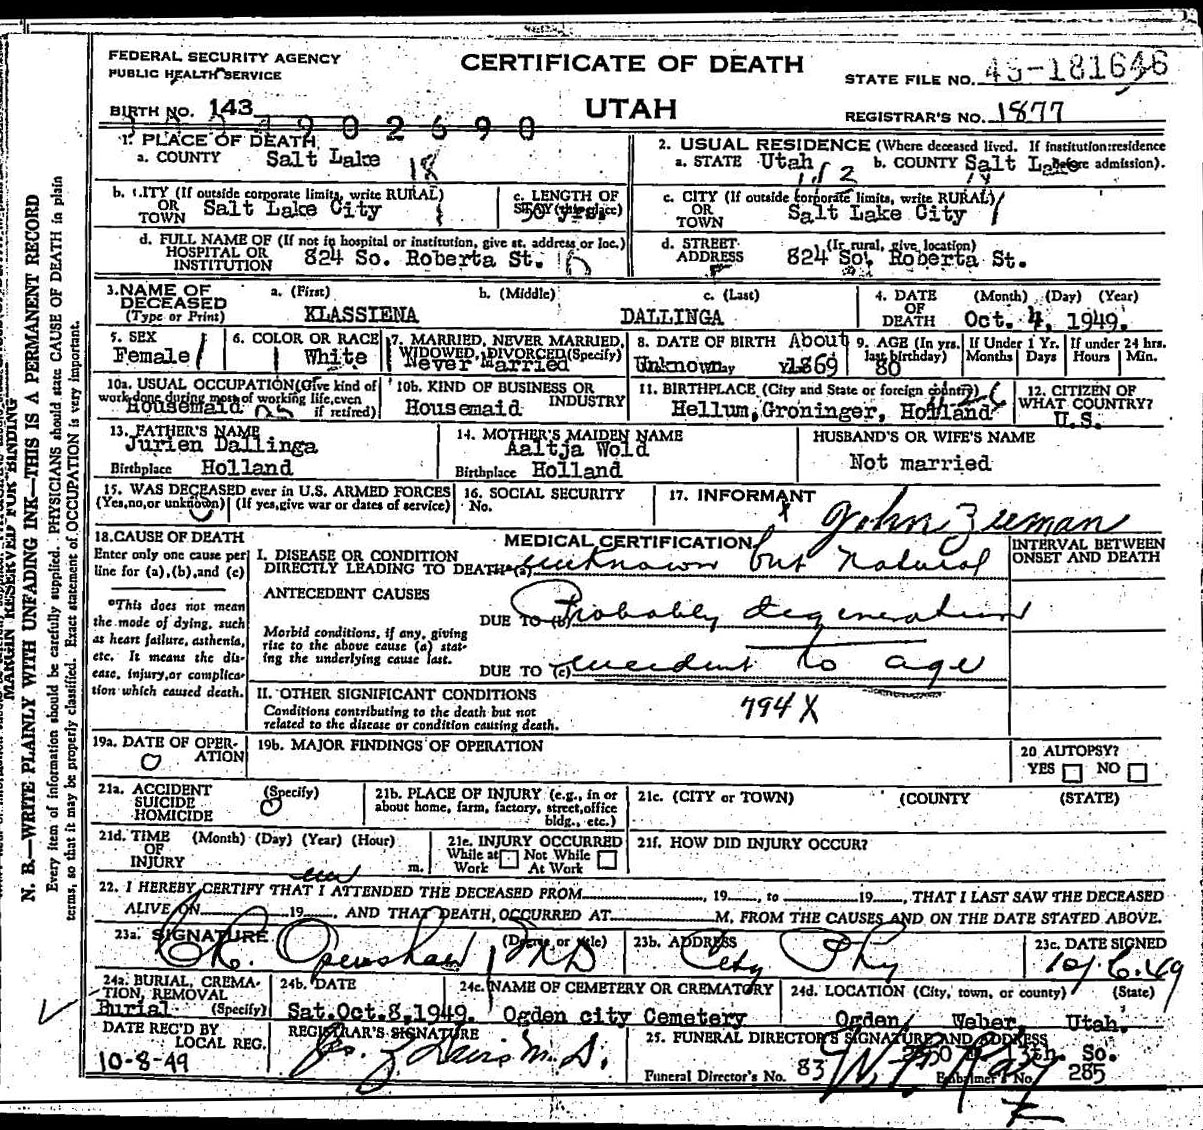 FEDERAL SECURITY AGENCY
PUBLIC HEALTH SERVICE
CERTIFICATE OF DEATH
STATE FILE NO.
BIRTH NO. 143
UTAH
REGISTRAR'S NO. 1877
1902690
1. PLACE OF DEATH
a. COUNTY Salt Lake 18
2. USUAL RESIDENCE (Where deceased lived. If institution:residence before admission).
a. STATE Utah b. COUNTY Salt Lake
b. CITY (If outside corporate limits, write RURAL)
OR TOWN Salt Lake City
c. LENGTH OF STAY (this place)
c. CITY (If outside corporate limits, write RURAL)
OR TOWN Salt Lake City
d. FULL NAME OF (If not in hospital or institution, give st. address or loc.)
HOSPITAL OR INSTITUTION 824 So. Roberta St.
d. STREET ADDRESS (If rural, give location)
824 So. Roberta St.
3. NAME OF DECEASED (Type or Print)
a. (First) b. (Middle) c. (Last)
KLASSIENA DALLINGA
4. DATE OF DEATH (Month) (Day) (Year)
Oct. 4, 1949.
5. SEX
Female
6. COLOR OR RACE
White
7. MARRIED, NEVER MARRIED, WIDOWED, DIVORCED(Specify)
Never Married
8. DATE OF BIRTH About
Unknown 1869
9. AGE (In yrs. last birthday)
80
If Under 1 Yr. Months Days
If under 24 hrs. Hours Min.
10a. USUAL OCCUPATION(Give kind of work done during most of working life, even if retired)
Housemaid
10b. KIND OF BUSINESS OR INDUSTRY
Housemaid
11. BIRTHPLACE (City and State or foreign country)
Hellum, Groninger, Holland
12. CITIZEN OF WHAT COUNTRY?
U.S.
13. FATHER'S NAME
Jurien Dallinga
Birthplace Holland
14. MOTHER'S MAIDEN NAME
Aaltja Wold
Birthplace Holland
HUSBAND'S OR WIFE'S NAME
Not married
15. WAS DECEASED ever in U.S. ARMED FORCES
(Yes,no,or unknown) (If yes,give war or dates of service)
16. SOCIAL SECURITY
No.
17. INFORMANT
x John Zeeman
18. CAUSE OF DEATH
Enter only one cause per line for (a),(b),and (c)
*This does not mean the mode of dying, such as heart failure, asthenia, etc. It means the disease, injury,or complication which caused death.
MEDICAL CERTIFICATION
INTERVAL BETWEEN ONSET AND DEATH
I. DISEASE OR CONDITION
DIRECTLY LEADING TO DEATH*(a) unknown but natural
ANTECEDENT CAUSES
DUE TO (b) Probably degeneration
Morbid conditions, if any, giving rise to the above cause (a) stating the underlying cause last.
DUE TO (c) incident to age
II. OTHER SIGNIFICANT CONDITIONS
Conditions contributing to the death but not related to the disease or condition causing death.
794X
19a. DATE OF OPERATION
19b. MAJOR FINDINGS OF OPERATION
20 AUTOPSY?
YES NO
21a. ACCIDENT SUICIDE HOMICIDE (Specify)
21b. PLACE OF INJURY (e.g., in or about home, farm, factory, street,office bldg., etc.)
21c. (CITY or TOWN) (COUNTY (STATE)
21d. TIME OF INJURY (Month) (Day) (Year) (Hour) m.
21e. INJURY OCCURRED
While at Work Not While At Work
21f. HOW DID INJURY OCCUR?
22. I HEREBY CERTIFY THAT I ATTENDED THE DECEASED FROM , 19 , to 19 , THAT I LAST SAW THE DECEASED
ALIVE ON 19 , AND THAT DEATH, OCCURRED AT M, FROM THE CAUSES AND ON THE DATE STATED ABOVE.
23a. SIGNATURE (Degree or title)
Openshaw, MD
23b. ADDRESS
City Phy
23c. DATE SIGNED
10-6-49
24a. BURIAL, CREMATION, REMOVAL (Specify)
Burial
24b. DATE
Sat.Oct.8,1949.
24c. NAME OF CEMETERY OR CREMATORY
Ogden city Cemetery
24d. LOCATION (City, town, or county) (State)
Ogden Weber Utah.
DATE REC'D BY LOCAL REG.
10-8-49
REGISTRAR'S SIGNATURE
25. FUNERAL DIRECTOR'S SIGNATURE AND ADDRESS
Funeral Director's No. 83
Embalmer's No. 285
MARGIN RESERVED FOR BINDING
N. B.—WRITE PLAINLY WITH UNFADING INK—THIS IS A PERMANENT RECORD
Every item of information should be carefully supplied. PHYSICIANS should state CAUSE OF DEATH in plain
terms, so that it may be properly classified. Exact statement of OCCUPATION is very important.